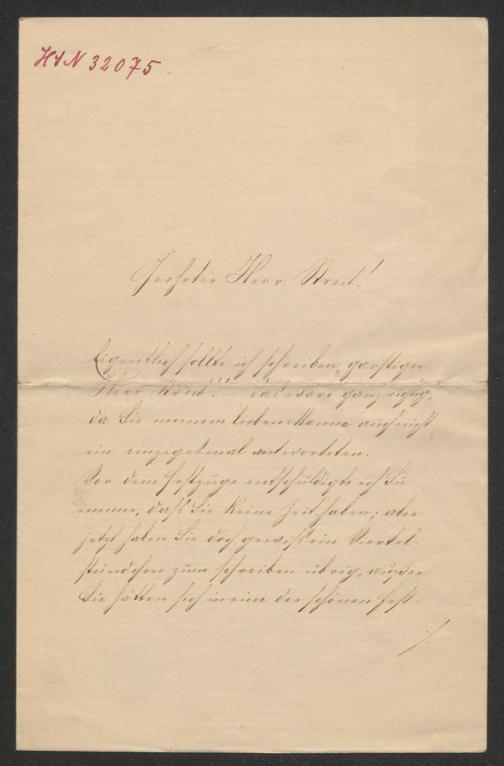 HIN 32075
Geehrter Herr Streit!
Eigentlich sollte ich schreiben „garstiger
Herr Streit“! das wäre ganz richtig,
da Sie meinem lieben Manne auch nicht
ein einzigesmal antworteten.
Vor dem Festzuge entschuldigte ich Sie
immer, daß Sie keine Zeit haben; aber
jetzt haben Sie doch gewiß ein Viertel-
stündchen zum schreiben übrig, außer
Sie hätten sich in eine der schönen Fest-
./.